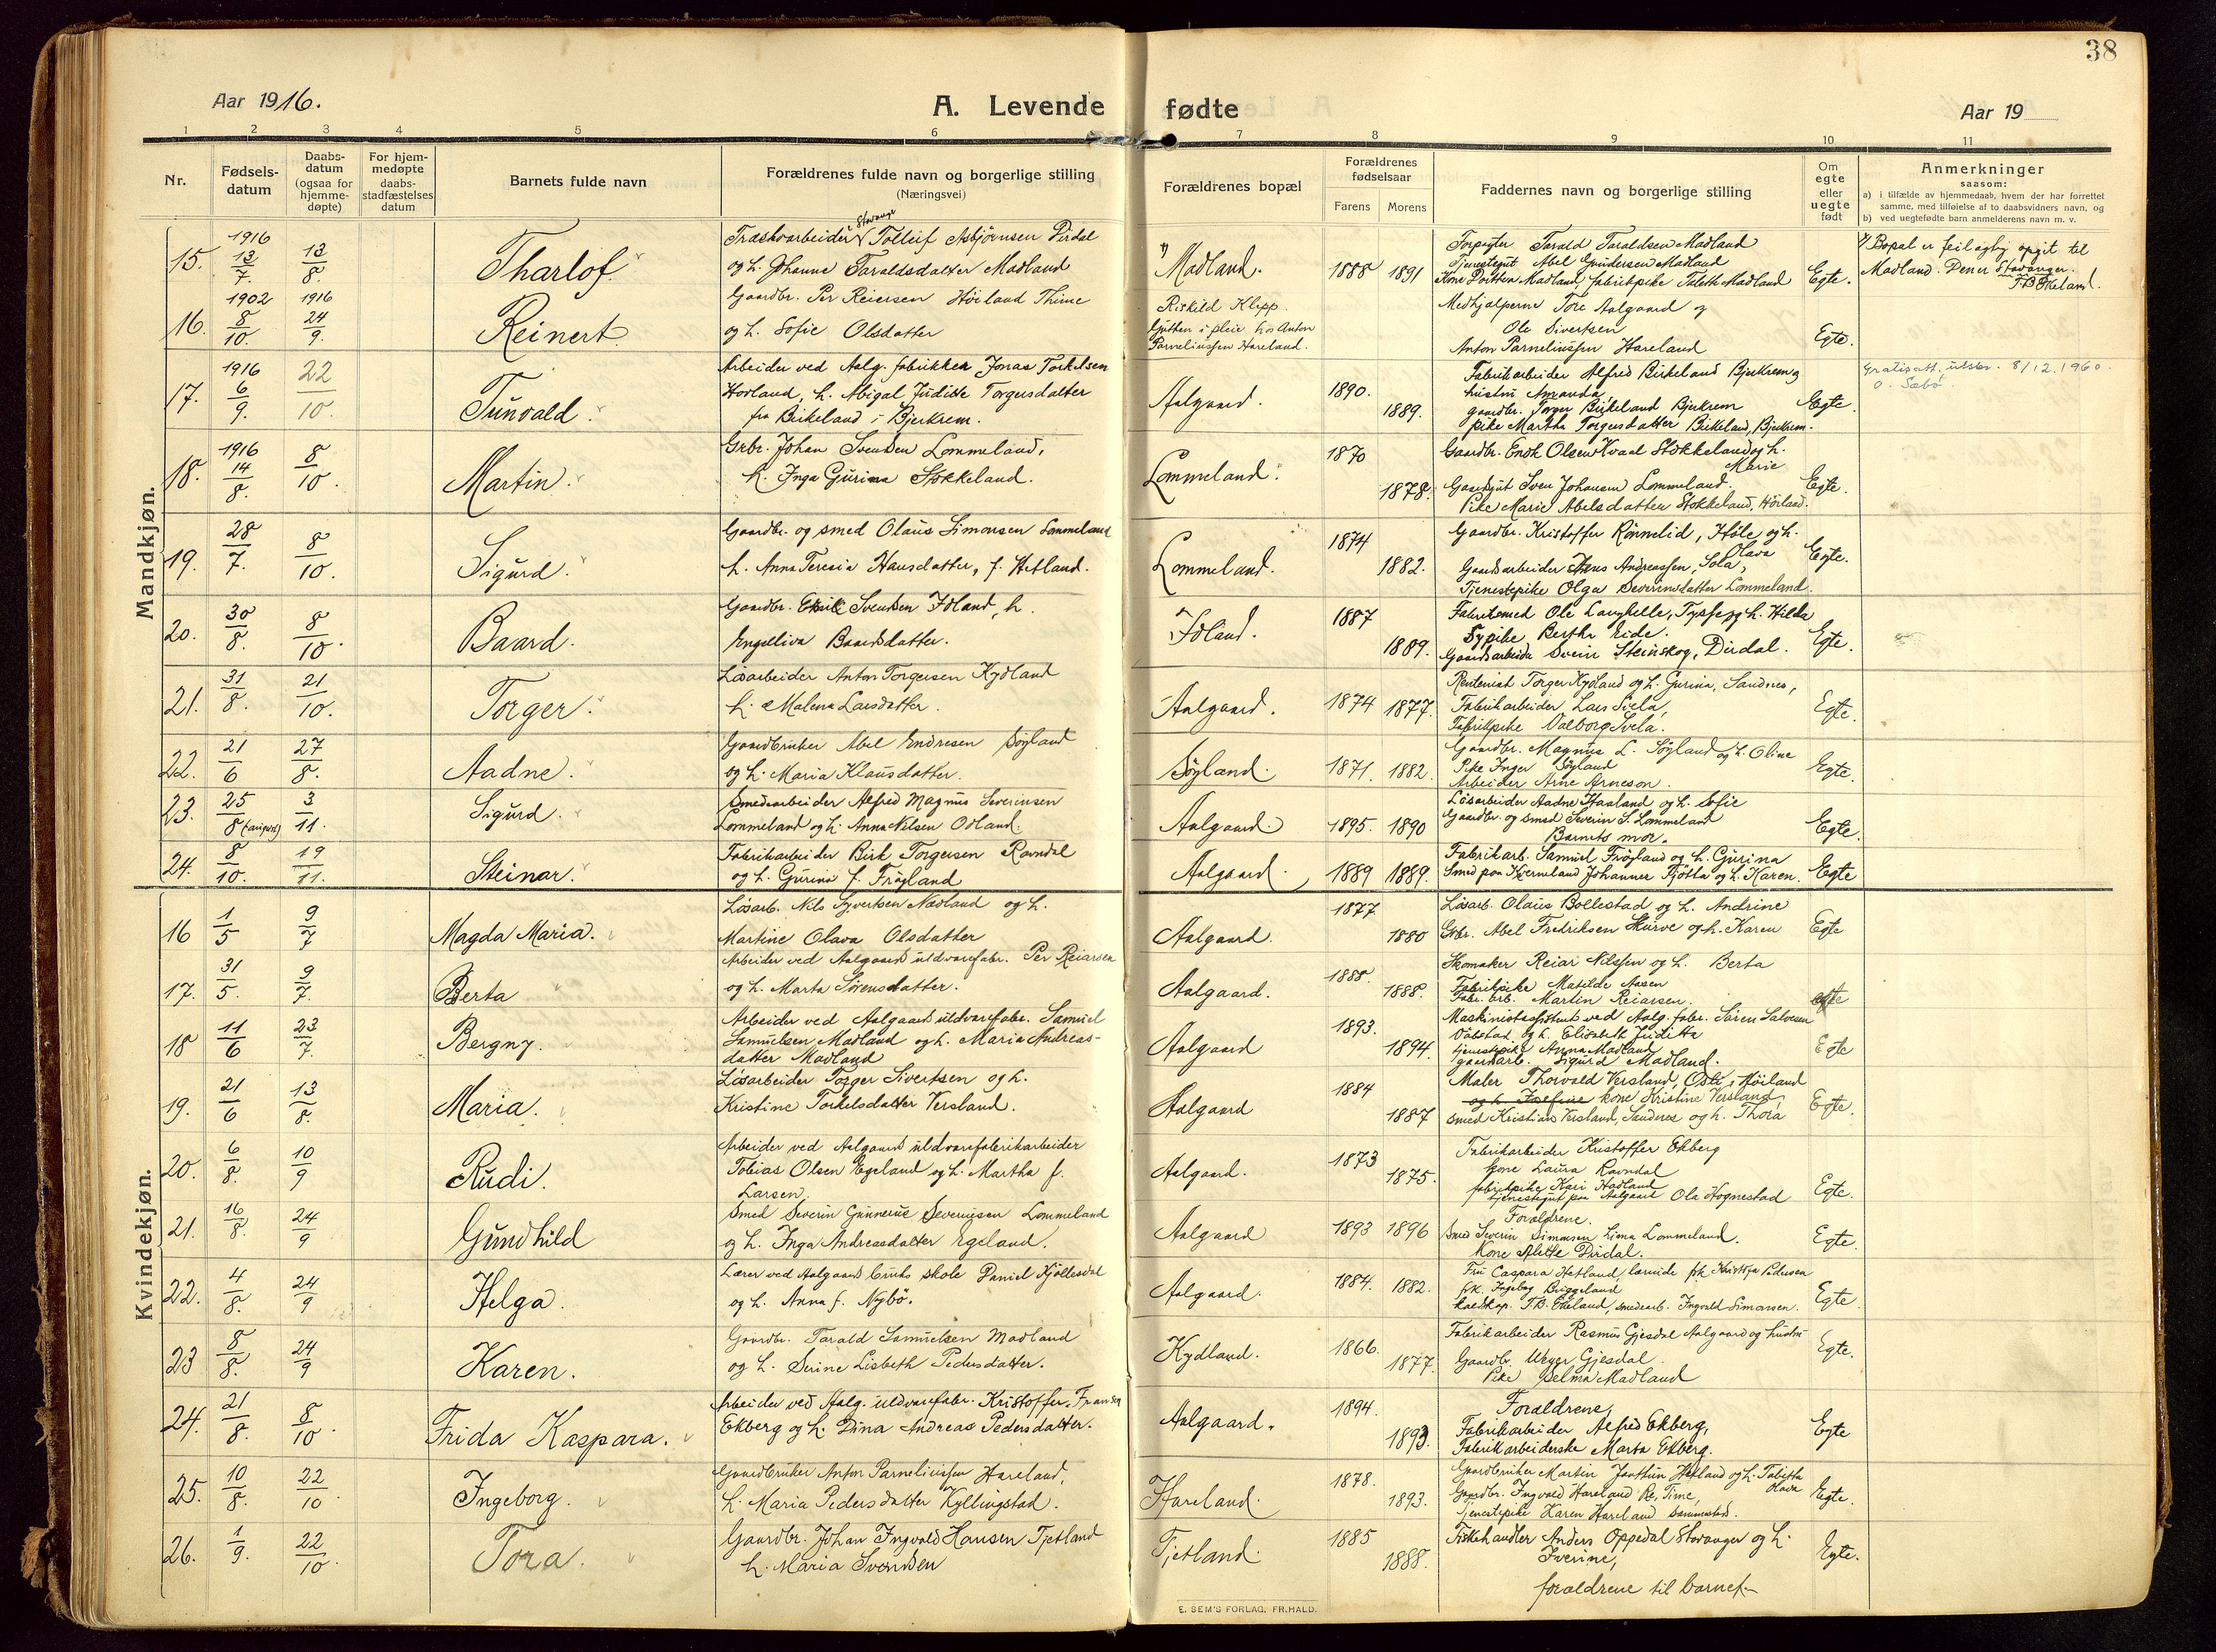 38
Aar 1916.
A. Levende fødte
Aar 19
1 2 3 4 5 6 7 8 9 10 11
Nr.
Fødsels-
datum
Daabs-
datum
(ogsaa for
hjemme-
døpte)
For hjem-
medøpte
daabs-
stadfæstelses
datum
Barnets fulde navn
Forældrenes fulde navn og borgerlige stilling
(Næringsvei)
Forældrenes bopæl
Forældrenes
fødselsaar
Farens Morens
Faddernes navn og borgerlige stilling
Om
egte
eller
uegte
født
Anmerkninger
saasom:
a) i tilfælde av hjemmedaab, hvem der har forrettet
samme, med tilføielse af to daabsvidners navn, og
b) ved uegtefødte barn anmelderens navn m. v.
Mandkjøn.
15. 1916 13/7 13/8 Tharlof.
Stavange
Træskoarbeider Tolleif Asbjørnsen Dirdal
og h. Johanne Taraldsdatter Madland
1) Madland. 1888 1891
Forpagter Tarald Taraldsen Madland
Tjenestegut Abel Gundersen Madland
Kone Dorthea Madland, fabrikpike Talette Madland
Egte.
1) Bopæl er feilagtig opgit til
Madland. Den er Stavanger.
T.B. Ekeland.
16. 1902 8/10. 1916 24/9. Reinert
Gaardbr. Per Reiersen Höiland Thime
og h. Sofie Olsdatter
Riskild Klepp.
Gutten i pleie hos Anton
Parneliussen Hareland.
Medhjælperne Tore Aalgaard og
Ole Sivertsen
Anton Parneliussen Hareland
Egte.
17. 1916 6/9. 22/10. Tunvald
Arbeider ved Aalg. fabrikker Jonas Torkelsen
Hovland, h. Abigal Juditte Torgersdatter
fra Birkeland i Bjerkrem.
Aalgaard. 1890. 1889.
Fabrikarbeider Alfred Birkeland Bjerkrem og
hustru Amanda
gaardbr. Torger Birkeland Bjerkrem
pike Martha Torgersdatter Birkeland, Bjerkrem.
Egte.
Gratisatt. utskr. 8/12.1960.
O. Sæbö
18. 1916 14/8. 8/10. Martin.
Grbr. Johan Svendsen Lommeland,
h. Inga Gurina Stokkeland.
Lommeland. 1870 1878.
Gaardbr. Enok Olsen Kvaal Stokkeland og h.
Marie
Gaardgut Sven Johansen Lommeland.
Pike Marie Abelsdatter Stokkeland, Höiland.
Egte.
19. 28/7. 8/10. Sigurd.
Gaardbr. og smed Olaus Simonsen Lommeland
h. Anna Teresia Hansdatter, f. Hetland.
Lommeland. 1874 1882.
Gaardbr. Kristoffer Rönnelid, Höle og h.
Olava
Gaardsarbeider Jens Andreassen, Sola,
Tjenestepike Olga Severinsdatter Lommeland.
Egte.
20. 30/8. 8/10. Baard.
Gaardbr. Eirik Svendsen Idland, h.
Engeliva Baardsdatter.
Idland. 1887 1889.
Fabriksmed Ole Langhelle, Tysse og h. Hilda
Sypike Berthe Eide.
Gaardsarbeider Svein Steinskog, Dirdal.
Egte.
21. 31/8. 21/10. Torger.
Lösarbeider Anton Torgersen Kydland
h. Malena Larsdatter.
Aalgaard. 1874 1877.
Rentenist Torger Kydland og h. Gurina, Sandnes,
Fabrikarbeider Lars Svela,
Fabrikpike Valborg Svela.
Egte.
22. 21/6 27/8. Aadne.
Gaardbruker Abel Endresen Söyland
og h. Maria Klausdatter.
Söyland. 1871. 1882.
Gaardbr. Magnus L. Söyland og h. Oline
Pike Inger Söyland
Arbeider Arne Arneson.
Egte.
23. 25/8 3/11. Sigurd.
Smedearbeider Alfred Magnus Severinsen
Lommeland og h. Anna Nilsen Odland.
Aalgaard. 1895. 1890
Lösarbeider Aadne Haaland og h. Sofie
Gaardbr. og smed Severin S. Lommeland
Barnets mor.
Egte.
24. 8/10. 19/11. Steinar.
Fabrikarbeider Birk Torgersen Ravndal
og h. Gurina f. Fröyland
Aalgaard. 1889 1889.
Fabrikarb. Samuel Fröyland og h. Gurina
Smed paa Kverneland Johannes Tjötta og h. Karen.
Egte
Kvindekjøn.
16 1/5 9/7 Magda Maria.
Lösarb. Nils Syvertsen Nedland og h.
Martine Olava Olsdatter
Aalgaard. 1877. 1880
Lösarb. Olaus Bollestad og h. Andrine
Grbr. Abel Fredriksen Skurve og h. Karen
Egte
17. 31/5. 9/7. Berta
Arbeider ved Aalgaards uldvarefabr. Per Reiarsen
og h. Marta Sörensdatter.
Aalgaard. 1888. 1888.
Skomaker Reiar Nilssen og h. Berta
Fabrikpike Matilde Aasen
Fabr. arb. Martin Reiarsen.
egte
18 11/6 23/7. Bergny.
Arbeider ved Aalgaards uldvarefabr. Samuel
Samuelsen Madland og h. Maria Andreas-
datter Madland
Aalgaard 1893. 1894.
Maskinistassistent ved Aalg. fabr. Sören Salvesen
Vatstad og h. Elisabeth Juditte
tjenestepike Anna Madland
gaardarb. Sigurd Madland.
Egte
19. 21/6 13/8. Maria.
Lösarbeider Torger Sivertsen og h.
Kristine Torkelsdatter Versland.
Aalgaard 1884 1887
Maler Thorvald Versland, Osli, Höiland
og h. Josefine kone Kristine Versland
smed Kristian Versland, Sandnes og h. Thora
Egte.
20. 6/8. 10/9 Rudi.
Arbeider ved Aalgaards uldvarefabrikarbeider
Tobias Olsen Egeland og h. Martha f.
Larsen
Aalgaard. 1873 1875.
Fabrikarbeider Kristoffer Ekberg
kone Laura Ravndal
fabrikpike Kari Hadland
tjenestegut paa Aalgaard Ola Hognestad
Egte.
21. 16/8. 24/9 Gundhild
Smed Severin Gunnerus Severinsen Lommeland
og h. Inga Andreasdatter Egeland.
Aalgaard 1893 1896
Forældrene.
Smed Severin Simonsen Lima Lommeland.
Kone Alette Dirdal.
Egte.
22. 4/8. 24/9 Helga.
Lærer ved Aalgaards bruks skole Daniel Kjöllesdal
og h. Anna f. Nybö.
Aalgaard. 1884. 1882.
Fru Caspara Hetland, lærerinde frk Kristofa Pedersen
frk. Ingebog Bryggeland
kaldskap. T.B. Ekeland, smedearb. Ingvald Simonsen.
Egte
23 8/8. 24/9 Karen.
Gaardbr. Tarald Samuelsen Madland
og h. Serine Lisbeth Pedersdatter.
Kydland. 1866. 1877.
Fabrikarbeider Rasmus Gjesdal Aalgaard og hustru
Gaardbr. Weyer Gjesdal
Pike Selma Madland
Egte.
24. 21/8. 8/10. Frida Kaspara.
Arbeider ved Aalg. uldvarefabr. Kristoffer Fransen
Ekberg og h. Dina Andreas Pedersdatter.
Aalgaard. 1894. 1893.
Forældrene,
Fabrikarbeider Alfred Ekberg,
Fabrikarbeiderske Marta Ekberg.
Egte
25. 10/8. 22/10. Ingeborg.
Gaardbruker Anton Parneliussen Hareland,
h. Maria Pedersdatter Kyllingstad.
Hareland. 1878. 1893.
Gaardbruker Martin Jaattun Hetland og h. Tabitta
Olava
Gaardbr. Ingvald Hareland Re, Time,
Tjenestepike Karen Hareland sammesteds.
Egte.
26. 1/9. 22/10. Tora.
Gaardbr. Johan Ingvald Hansen Tjetland
h. Maria Svendsen
Tjetland. 1885 1888.
Fiskehandler Anders Oppedal Stavanger og h.
Iverine,
forældrene til barnet.
Egte.
E. SEM'S FORLAG, FR.HALD.